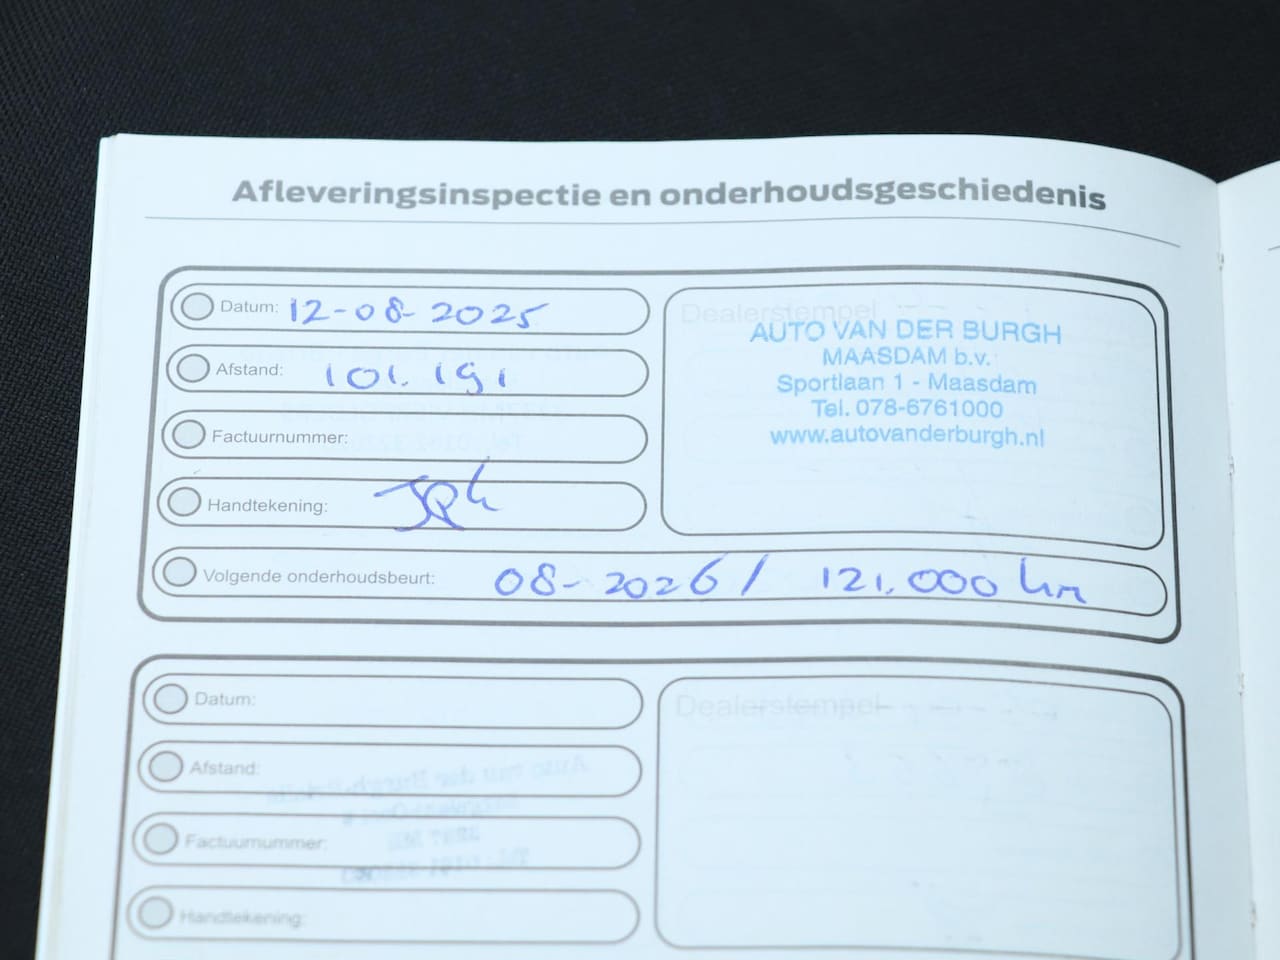 Afleveringsinspectie en onderhoudsgeschiedenis
Datum: 12-08-2025
Afstand: 101.191
Factuurnummer:
Handtekening:
Dealerstempel
AUTO VAN DER BURGH
MAASDAM b.v.
Sportlaan 1 - Maasdam
Tel. 078-6761000
www.autovanderburgh.nl
Volgende onderhoudsbeurt: 08-2026 / 121.000 km
Datum:
Afstand:
Factuurnummer:
Handtekening:
Dealerstempel